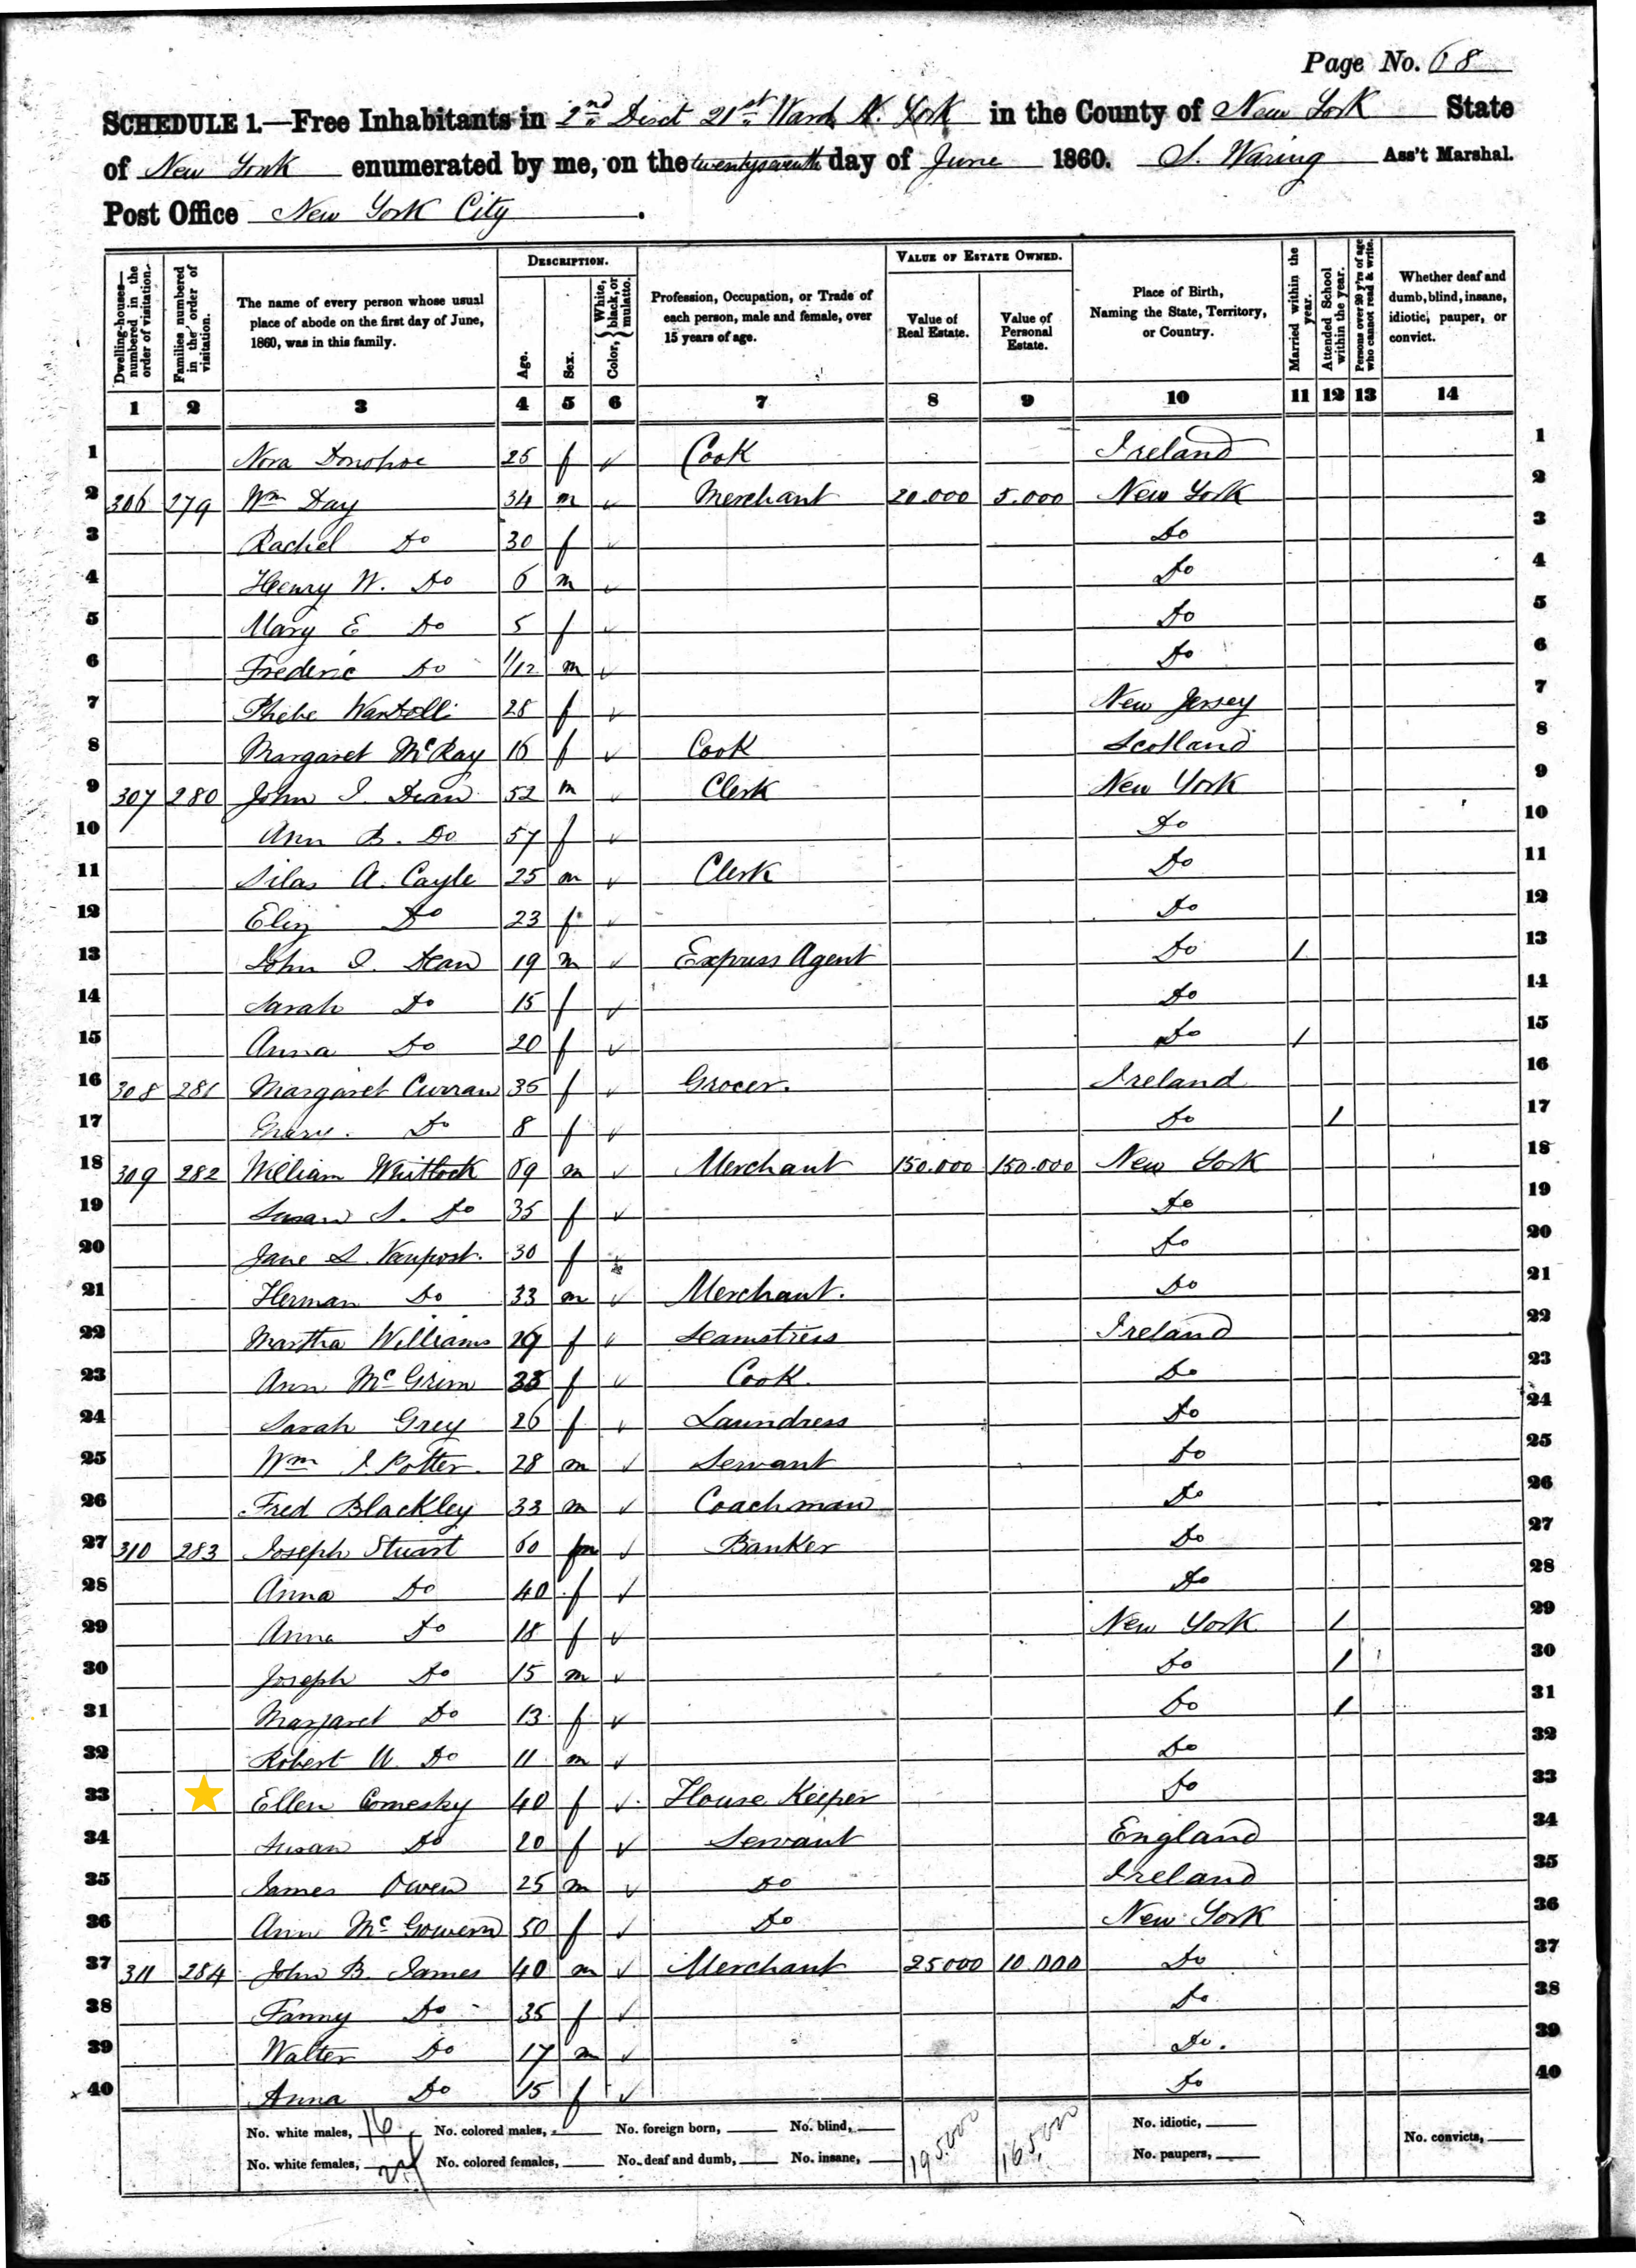 Page No. 68
SCHEDULE 1.—Free Inhabitants in 2nd Dirct 21st Ward N. York in the County of New York State
of New York enumerated by me, on the twentyseventh day of June 1860. S. Waring Ass't Marshal.
Post Office New York City.
Dwelling-houses—numbered in the order of visitation. Families numbered in the order of visitation. The name of every person whose usual place of abode on the first day of June, 1860, was in this family. DESCRIPTION. Age. Sex. Color, {White, black, or mulatto. Profession, Occupation, or Trade of each person, male and female, over 15 years of age. VALUE OF ESTATE OWNED. Value of Real Estate. Value of Personal Estate. Place of Birth, Naming the State, Territory, or Country. Married within the year. Attended School within the year. Persons over 20 y'rs of age who cannot read & write. Whether deaf and dumb, blind, insane, idiotic, pauper, or convict.
1 2 3 4 5 6 7 8 9 10 11 12 13 14
1 Nora Donohoe 25 f ✓ Cook Ireland 1
2 306 279 Wm Day 34 m ✓ Merchant 20.000 5.000 New York 2
3 Rachel Do 30 f ✓ Do 3
4 Henry W. Do 6 m ✓ Do 4
5 Mary E Do 5 f ✓ Do 5
6 Frederic Do 1/12 m ✓ Do 6
7 Phebe 28 f ✓ New Jersey 7
8 Margaret McRay 16 f ✓ Cook Scotland 8
9 307 280 John I. Dean 52 m ✓ Clerk New York 9
10 Ann B. Do 57 f ✓ Do 10
11 Silas A. Cayle 25 m ✓ Clerk Do 11
12 Eliz Do 23 f ✓ Do 12
13 John I. Dean 19 m ✓ Express Agent Do 1 13
14 Sarah Do 15 f ✓ Do 14
15 Anna Do 20 f ✓ Do 1 15
16 308 281 Margaret Curran 35 f ✓ Grocer. Ireland 16
17 Mary. Do 8 f ✓ Do 1 17
18 309 282 William Whitlock 69 m ✓ Merchant 150.000 150.000 New York 18
19 Susan S. Do 35 f ✓ Do 19
20 Jane L. Vanpost. 30 f ✓ Do 20
21 Herman Do 33 m ✓ Merchant. Do 21
22 Martha Williams 29 f ✓ Seamstress Ireland 22
23 Ann McGrim 38 f ✓ Cook. Do 23
24 Sarah Grey 26 f ✓ Laundress Do 24
25 Wm J. Potter. 28 m ✓ Servant Do 25
26 Fred Blackley 33 m ✓ Coachman Do 26
27 310 283 Joseph Stuart 60 m ✓ Banker Do 27
28 Anna Do 40 f ✓ Do 28
29 Anna Do 18 f ✓ New York 1 29
30 Joseph Do 15 m ✓ Do 1 30
31 Margaret Do 13 f ✓ Do 1 31
32 Robert W. Do 11 m ✓ Do 32
33 Ellen Comesky 40 f ✓ House Keeper Do 33
34 Susan Do 20 f ✓ Servant England 34
35 James Owen 25 m ✓ Do Ireland 35
36 Ann McGowern 50 f ✓ Do New York 36
37 311 284 John B. James 40 m ✓ Merchant 25000 10.000 Do 37
38 Fanny Do 35 f ✓ Do 38
39 Walter Do 17 m ✓ Do. 39
40 Anna Do 15 f ✓ Do 40
No. white males, 16 No. colored males, No. foreign born, No. blind, 195000 165,000 No. idiotic, No. convicts,
No. white females, 24 No. colored females, No. deaf and dumb, No. insane, No. paupers,